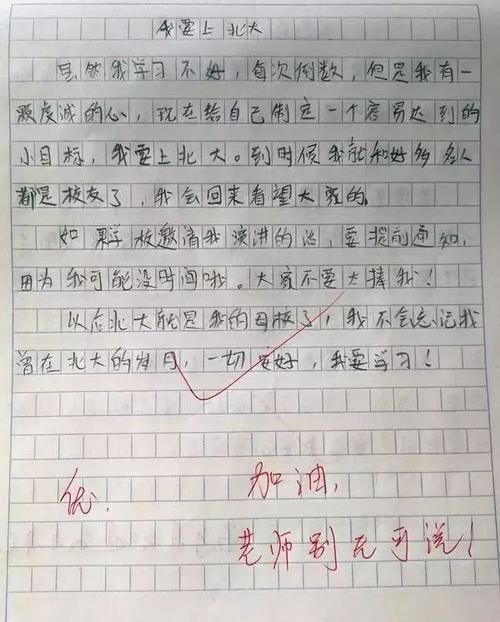 我要上北大
虽然我学习不好,每次倒数,但是我有一
颗虔诚的心,现在给自己制定一个容易达到的
小目标,我要上北大。到时候我就和好多名人
都是校友了,我会回来看望大家的。
如果学校邀请我演讲的话,要提前通知,
因为我可能没时间哦。大家不要太捧我!
以后北大就是我的母校了,我不会忘记我
曾在北大的岁月,一切安好,我要学习!
优.
加油,
老师别无可说!